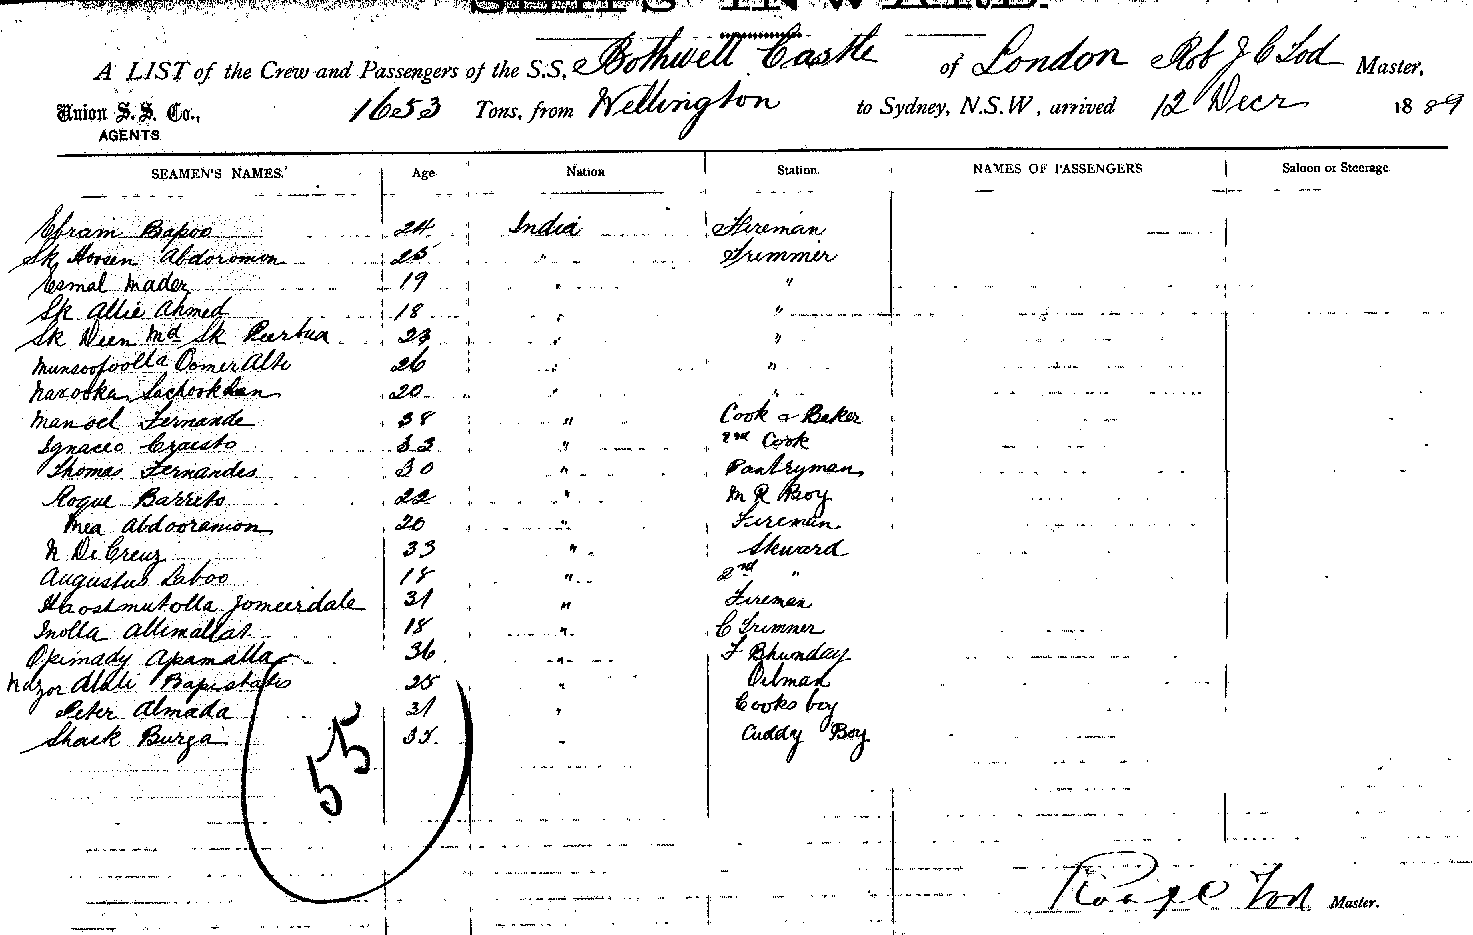 SHIPS INWARD.
A LIST of the Crew and Passengers of the S.S. Bothwell Castle of London Rob J C Tod Master,
Union S. S. Co., 1653 Tons, from Wellington to Sydney, N.S.W, arrived 12 Decr 1889
AGENTS.
SEAMEN'S NAMES. Age Nation Station. NAMES OF PASSENGERS Saloon or Steerage
Ebram Bapoo 24 India Fireman
Sk Hoosen Abdoromon 25 " Trimmer
Esmal Mader 19 " "
Sk Allie Ahmed 18 " "
Sk Deen Md Sk Peerbua 23 " "
Munsoofoolla Oomer Alli 26 " "
20 " "
Manoel Fernande 38 " Cook & Baker
Ignaceo Craisto 33 " 2nd Cook
Thomas Fernandes 30 " Pantryman
Roque Barreto 22 " M R Boy
Mea Abdooramon 20 " Fireman
N De Creuz 33 " Steward
Augustus Laboo 18 " 2nd "
Haostmutolla Jomeerdale 31 " Fireman
Inolla Allimallat 18 " C Trimner
Opimady Apamalla 36 " F Bhunday
Nazor Alali 25 " Oilman
Peter Almada 31 " Cooks boy
Shaik Burga 35 " Cuddy Boy
55
Rob J C Tod Master.